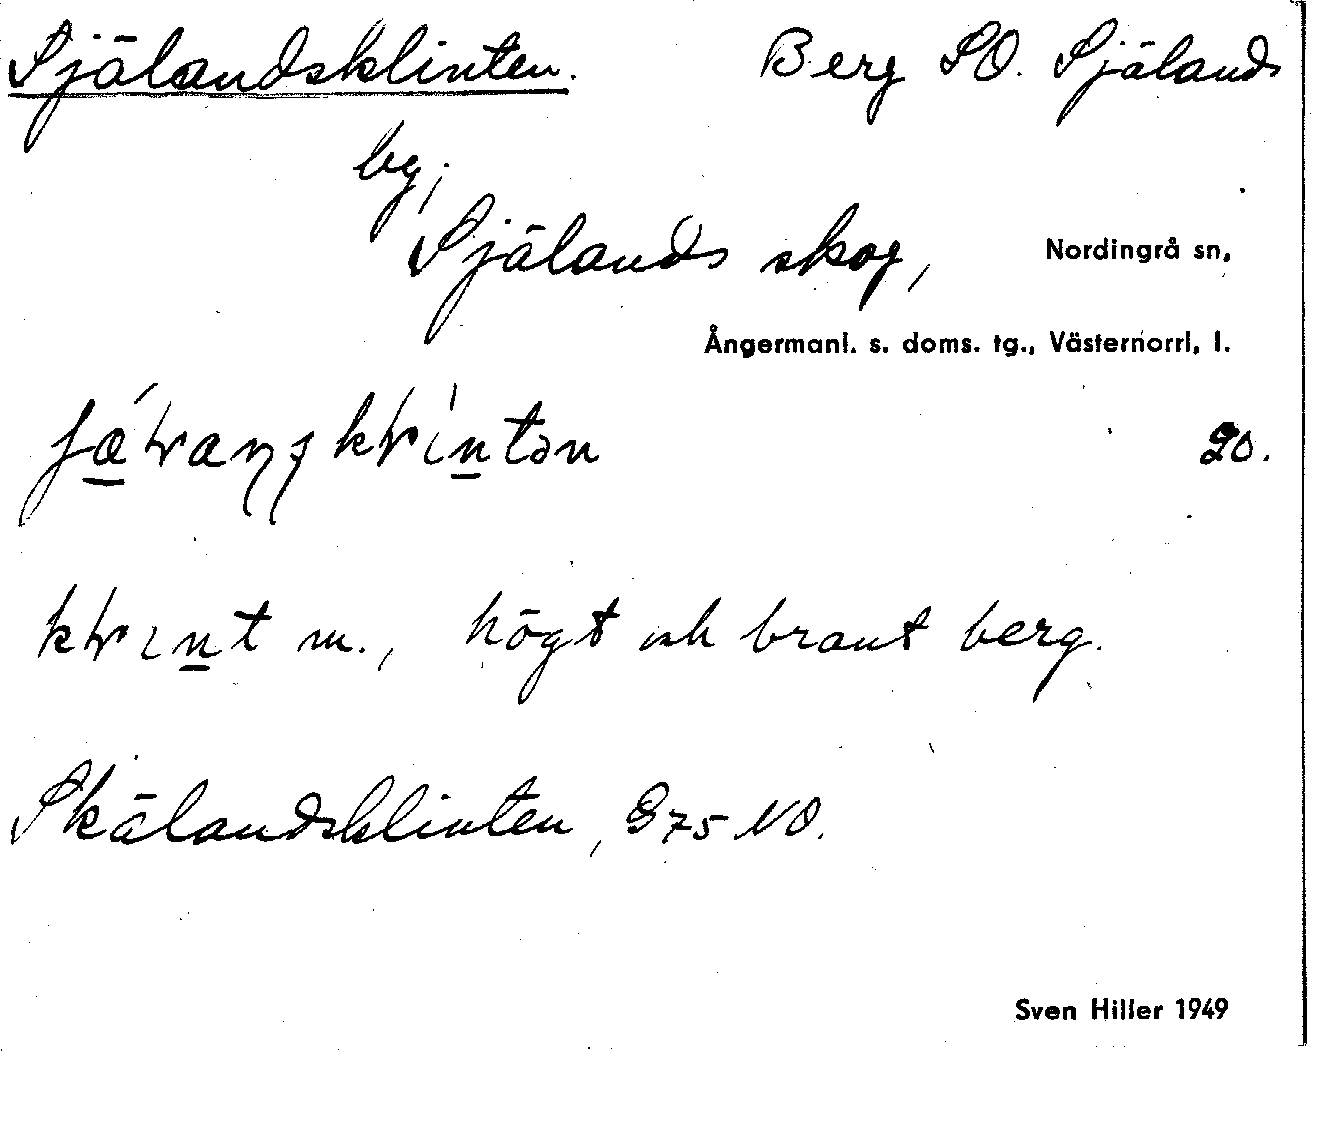 Själandsklinten. Berg SO. Själands
by;
Själands skog, Nordingrå sn,
Ångermanl. s. doms. tg., Västernorrl. l.
20.
m., högt och brant berg.
Skälandsklinten, 975 NO.
Sven Hiller 1949